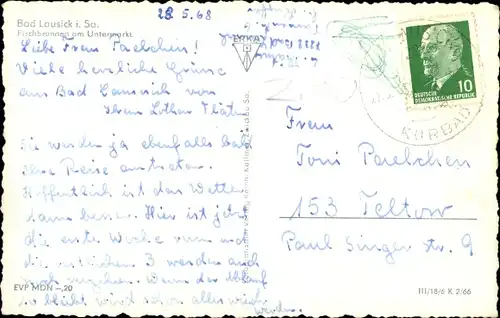 Bad Lausick i. Sa.
Fischbrunnen am Untermarkt
28.5.68
Liebe Frau Paelchen!
Viele herzliche Grüsse
aus Bad Lausick von
Ihrem Lothar
Sie werden ja ebenfalls bald
Ihre Reise antreten.
Hoffentlich ist das Wetter
dann besser. Hier ist jetzt
die erste Woche rum und
die restlichen 3 werden auch
noch vergehen. Wenn der Ablauf
so bleibt wird schon alles
werden.
EVP MDN -,20
DEUTSCHE
DEMOKRATISCHE REPUBLIK
10
KURBAD
Frau
Toni Paelchen
153 Teltow
Paul Singer str. 9
III/18/6 K 2/66